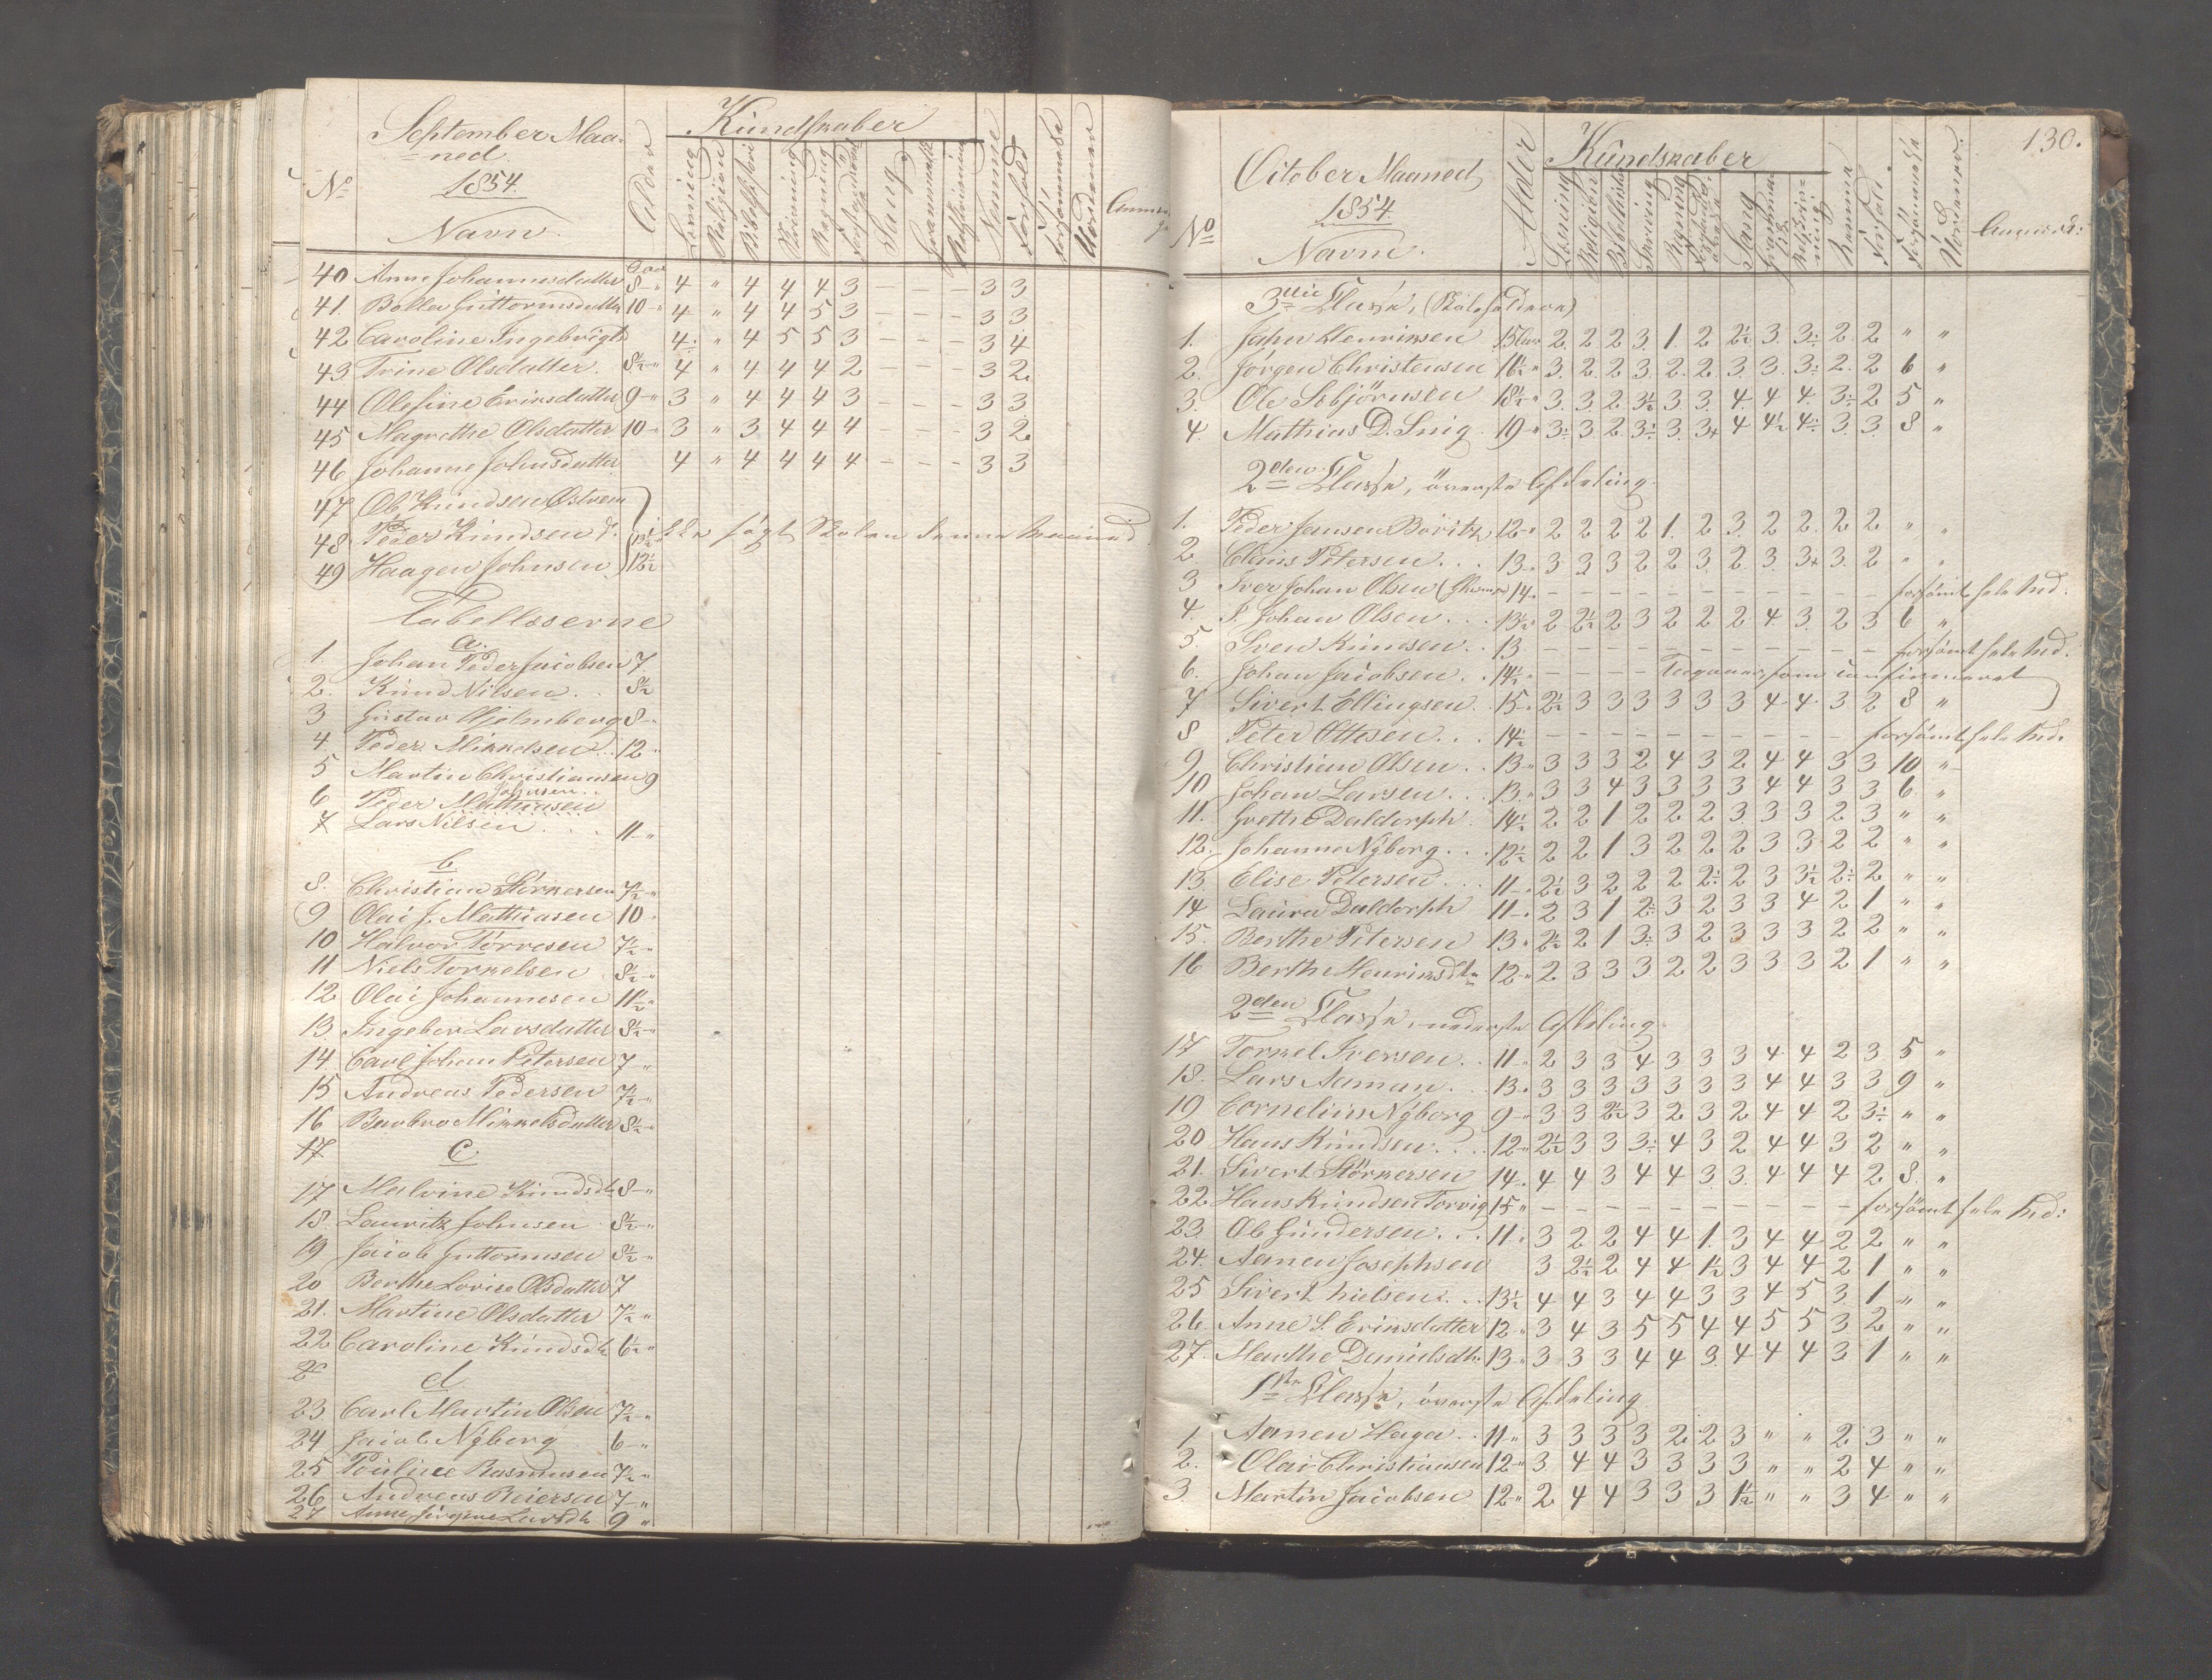 September Maa-
ned.
1854.
No
Navn.
Alder
Kundskaber
Læsning Religion Skrivning Regning Sang Grammatik Nemme Forhold Forsømmelse
40 Anne Johannesdatter 8 " 4 " 4 4 4 3 - - - 3 3
41. Bolla Guttormsdatter 10 " 4 " 4 4 5 3 - - - 3 3
42 Caroline Ingebrigtd 4 " 4 5 5 3 - - - 3 4
43 Trine Olsdatter. 8½ " 4 " 4 4 4 2 - - - 3 2
44 Olefine Eriksdatter 9 " 3 " 4 4 4 3 - - - 3 3
45 Magrethe Olsdatter 10 " 3 " 3 4 4 4 - - - 3 2
46 Johanne Johnsdatter 4 " 4 4 4 4 - - - 3 3
47 Ole Knudsen Østrem
48 Peder Knudsen 13½ ikke søgt Skolen denne Maaned
49 Haagen Johnsen 12½
Tabellæserne
a.
1. Johan Peder Jacobsen 7
2. Knud Nilsen . . 8½
3 Gustav Hjelmberg 8 "
4. Peder Mikkelsen . . 12 "
5 Martin Christiansen 9
Johnsen
6 Peder Mathiesen
7 Lars Nilsen . . . 11 "
b
8. Christian Størkersen 7½ "
9 Olai J. Mathiasen 10 "
10 Halvor Torresen 7½ "
11 Niels Torkelsen 8½ "
12 Olai Johannesen 11½ "
13. Ingebor Larsdatter 8½ "
14 Carl Johan Petersen 7 "
15 Andreas Pedersen 7½ "
16 Barbro Mikkelsdatter 8½ "
17 c
17 Malvine Knudsdtr 8 "
18. Lauritz Johnsen 8½ "
19 Jacob Guttormsen 8½ "
20 Berthe Lovise Olsdatter 7
21. Martine Olsdatter 7½ "
22 Caroline Knudsdtr 6½ "
d
23. Carl Martin Olsen 7½ "
24 Jacob Nÿberg 6 "
25 Pouline Rasmusen 7½ "
26 Andreas Reiersen 7 "
27 Anne Larsdtr 9 "
130.
October Maaned
1854.
No
Navne.
Alder
Kundskaber
Læsning Religion Skrivning Regning Sang Nemme Forhold Forsømmelse
3die Klasse, (Skoleholdere)
1. Jahn Henriksen 15 2. 2 2 3. 1. 2 2½ 3. 3÷ 2. 2 " "
2. Jörgen Christensen 16½ " 3. 2. 2 3. 2. 2 3. 3. 3÷ 2. 2 6 "
3. Ole Esbjörnsen 18½ " 3. 3. 2 3½ 3. 3. 4. 4 4. 3÷ 2 5 "
4. Mathias D. Snig. 19 " 3÷ 3 2 3÷ 3. 3+ 4 4½ 4÷ 3. 3. 8 "
2den Klasse, överste Afdeling.
1. Peder Jansen Böritz 12 " 2 2 2 2 1. 2 3. 2 2. 2 2 " "
2 Claus Petersen . . . 13 " 3 3 3 2 2 3. 2 3. 3+ 3. 2 " "
3 Iver Johan Olsen 14. - - - - - - - - - - - forsömt hele Md.
4. S. Johan Olsen . . . 13½ 2 2½ 2 3 2 2 2 4 3. 2 3 6 "
5. Sven Knudsen . . 13 - - - - - - - - - - - forsömt hele Md.
6. Johan Jacobsen . . 14½ - - - - Udgaaet som confirmeret
7 Sivert Ellingsen. . 15. 2½ 3 3 3 3 3 3 4. 4. 3 2 8 "
8 Peter Ottesen . . . 14½ - - - - - - - - - - forsömt hele Md.
9. Christian Olsen . . 13 " 3 3 3 2 4 3 2 4 4 3 3 10 "
10 Johan Larsen . . . 13. " 3 3 4 3 3 3 3 4 4 3 3 6. "
11. Grethe Daldorph. 14½ 2 2 1 2 2 2 3. 3 3 2 3 " "
12. Johanne Nÿborg . . . 12½ 2 2 1 3 2 2 2 3 3 2 2 " "
13. Elise Petersen . . . 11 " 2½ 3 2 2 2 2÷ 2 3 3½ 2÷ 2 " "
14 Laura Daldorph 11 " 2 3 1 2÷ 3 2 3 3 4 2 1 " "
15. Berthe Petersen 13 " 2½ 2 1 3÷ 3 2 3 3 3 2 2 " "
16 Berthe Henriksdtr 12 " 2 3 3 3 2 2 3 3 3 2 1 " "
2den Klasse, nederste Afdeling
17 Torkel Iversen . . 11 " 2 3 3 4 3 3 3 4 4 2 3 5 "
18. Lars Aaman . . . 13. " 3 3 3 3 3 3 3 4 4 3 3 9 "
19 Cornelius Nÿborg 9 " 3 3 2½ 3 2 3 2 4 4 2 3÷ " "
20 Hans Knudsen . . . 12 " 2½ 3 3 3÷ 4 3 2 4 4 3 2 " "
21. Sivert Störkersen 14. 4 4 3 4 4 3 3. 4 4 4 2 8. "
22 Hans Knudsen Torvig 15 " - - - - - - - - - - forsömt hele Md:
23. Ole Gundersen . . . 11 " 3 2 2 4 4 1. 3 4 4 2 2 " "
24. Aanen Josephsen 3 2½ 2 4 4 1½ 3 4 4 2 1 " "
25 Sivert Nielsen . . . 13½ 4 4 3 4 4 3 3 4 5 3. 1 " "
26. Anne S. Eriksdatter 12 " 3 4 3 5 5 4 4 5 5 3 2 " "
27. Marthe Danielsdtr 13 " 3 3 3 4 4 3. 4 4 4 3 1 " "
1ste Klasse, överste Afdeling
1 Aanen Haga . . 11 " 3 3 3 3 2 2 3 " " 2 3 " "
2. Olai Christiansen 12 " 3 4 4 3 3 3 3 " " 2 4 " "
3. Martin Jacobsen 12 " 2 4 4 3 3 3 1½ " " 3 4 " "